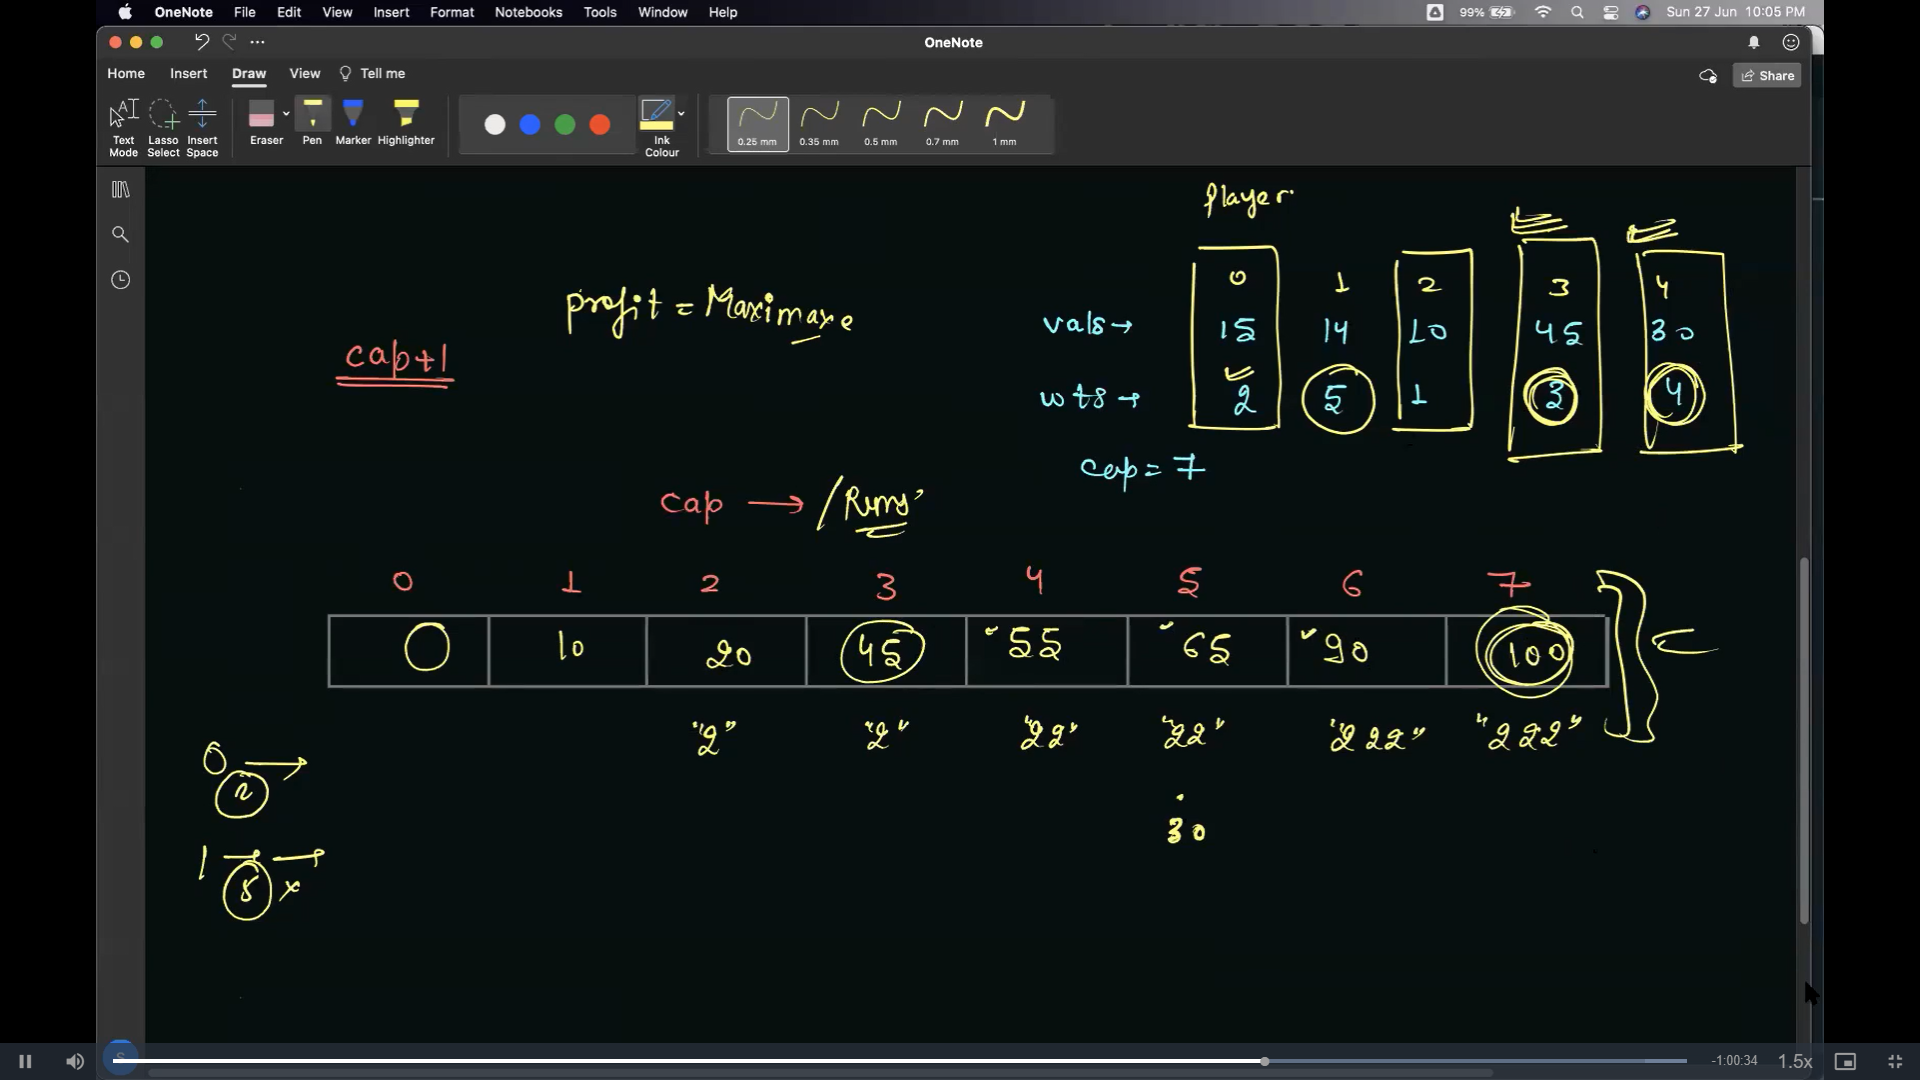 OneNote File Edit View Insert Format Notebooks Tools Window Help 99% Sun 27 Jun 10:05 PM
OneNote
Home Insert Draw View Tell me Share
Text Mode Lasso Select Insert Space Eraser Pen Marker Highlighter Ink Colour 0.25 mm 0.35 mm 0.5 mm 0.7 mm 1 mm
Player
0 1 2 3 4
profit = Maximaxe
vals → 15 14 10 45 30
cap+1
wts → 2 5 1 3 4
cap = 7
cap → / Runs
0 1 2 3 4 5 6 7
0 10 20 45 55 65 90 100
"2" "2" "22" "22" "222" "222"
0 →
2
30
1 → →
5 x
S -1:00:34 1.5x